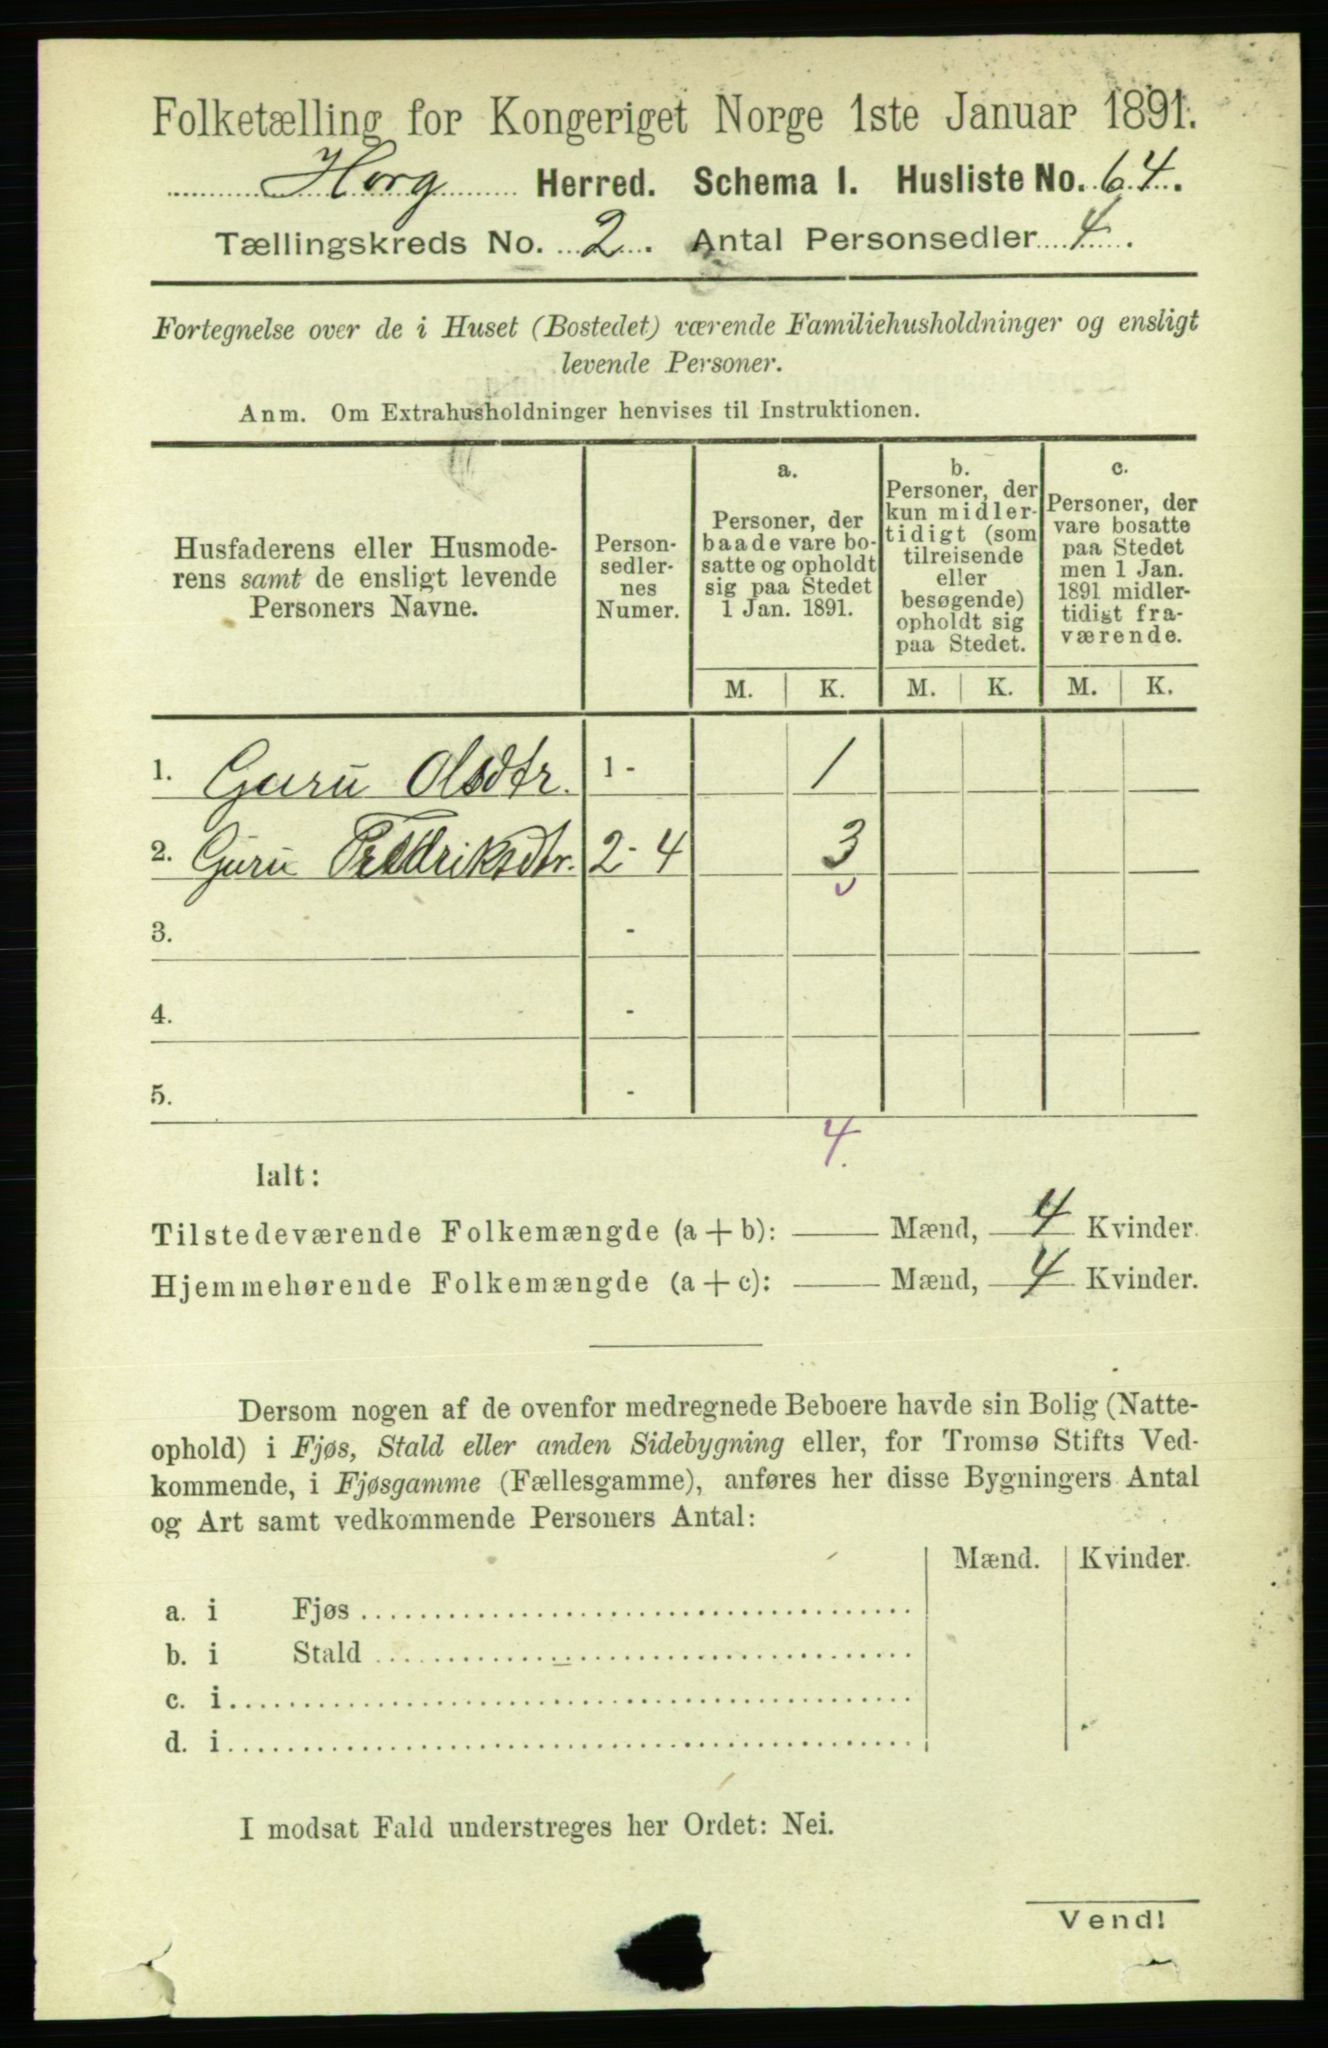 Folketælling for Kongeriget Norge 1ste Januar 1891.
Horg Herred. Schema I. Husliste No. 64.
Tællingskreds No. 2. Antal Personsedler 4.
Fortegnelse over de i Huset (Bostedet) værende Familiehusholdninger og ensligt
levende Personer.
Anm. Om Extrahusholdninger henvises til Instruktionen.
Husfaderens eller Husmode-
rens samt de ensligt levende
Personers Navne.
Person-
sedler-
nes
Numer.
a.
Personer, der
baade vare bo-
satte og opholdt
sig paa Stedet
1 Jan. 1891.
b.
Personer, der
kun midler-
tidigt (som
tilreisende
eller
besøgende)
opholdt sig
paa Stedet.
c.
Personer, der
vare bosatte
paa Stedet
men 1 Jan.
1891 midler-
tidigt fra-
værende.
M. K. M. K. M. K.
1. Guru Olsdtr. 1 - 1
2. Guru Fredriksdtr. 2 - 4 3
3. -
4. -
5. -
4.
Ialt:
Tilstedeværende Folkemængde (a + b): —— Mænd, 4 Kvinder.
Hjemmehørende Folkemængde (a + c): —— Mænd, 4 Kvinder.
Dersom nogen af de ovenfor medregnede Beboere havde sin Bolig (Natte-
ophold) i Fjøs, Stald eller anden Sidebygning eller, for Tromsø Stifts Ved-
kommende, i Fjøsgamme (Fællesgamme), anføres her disse Bygningers Antal
og Art samt vedkommende Personers Antal:
Mænd. Kvinder.
a. i Fjøs
b. i Stald
c. i
d. i
I modsat Fald understreges her Ordet: Nei.
Vend!